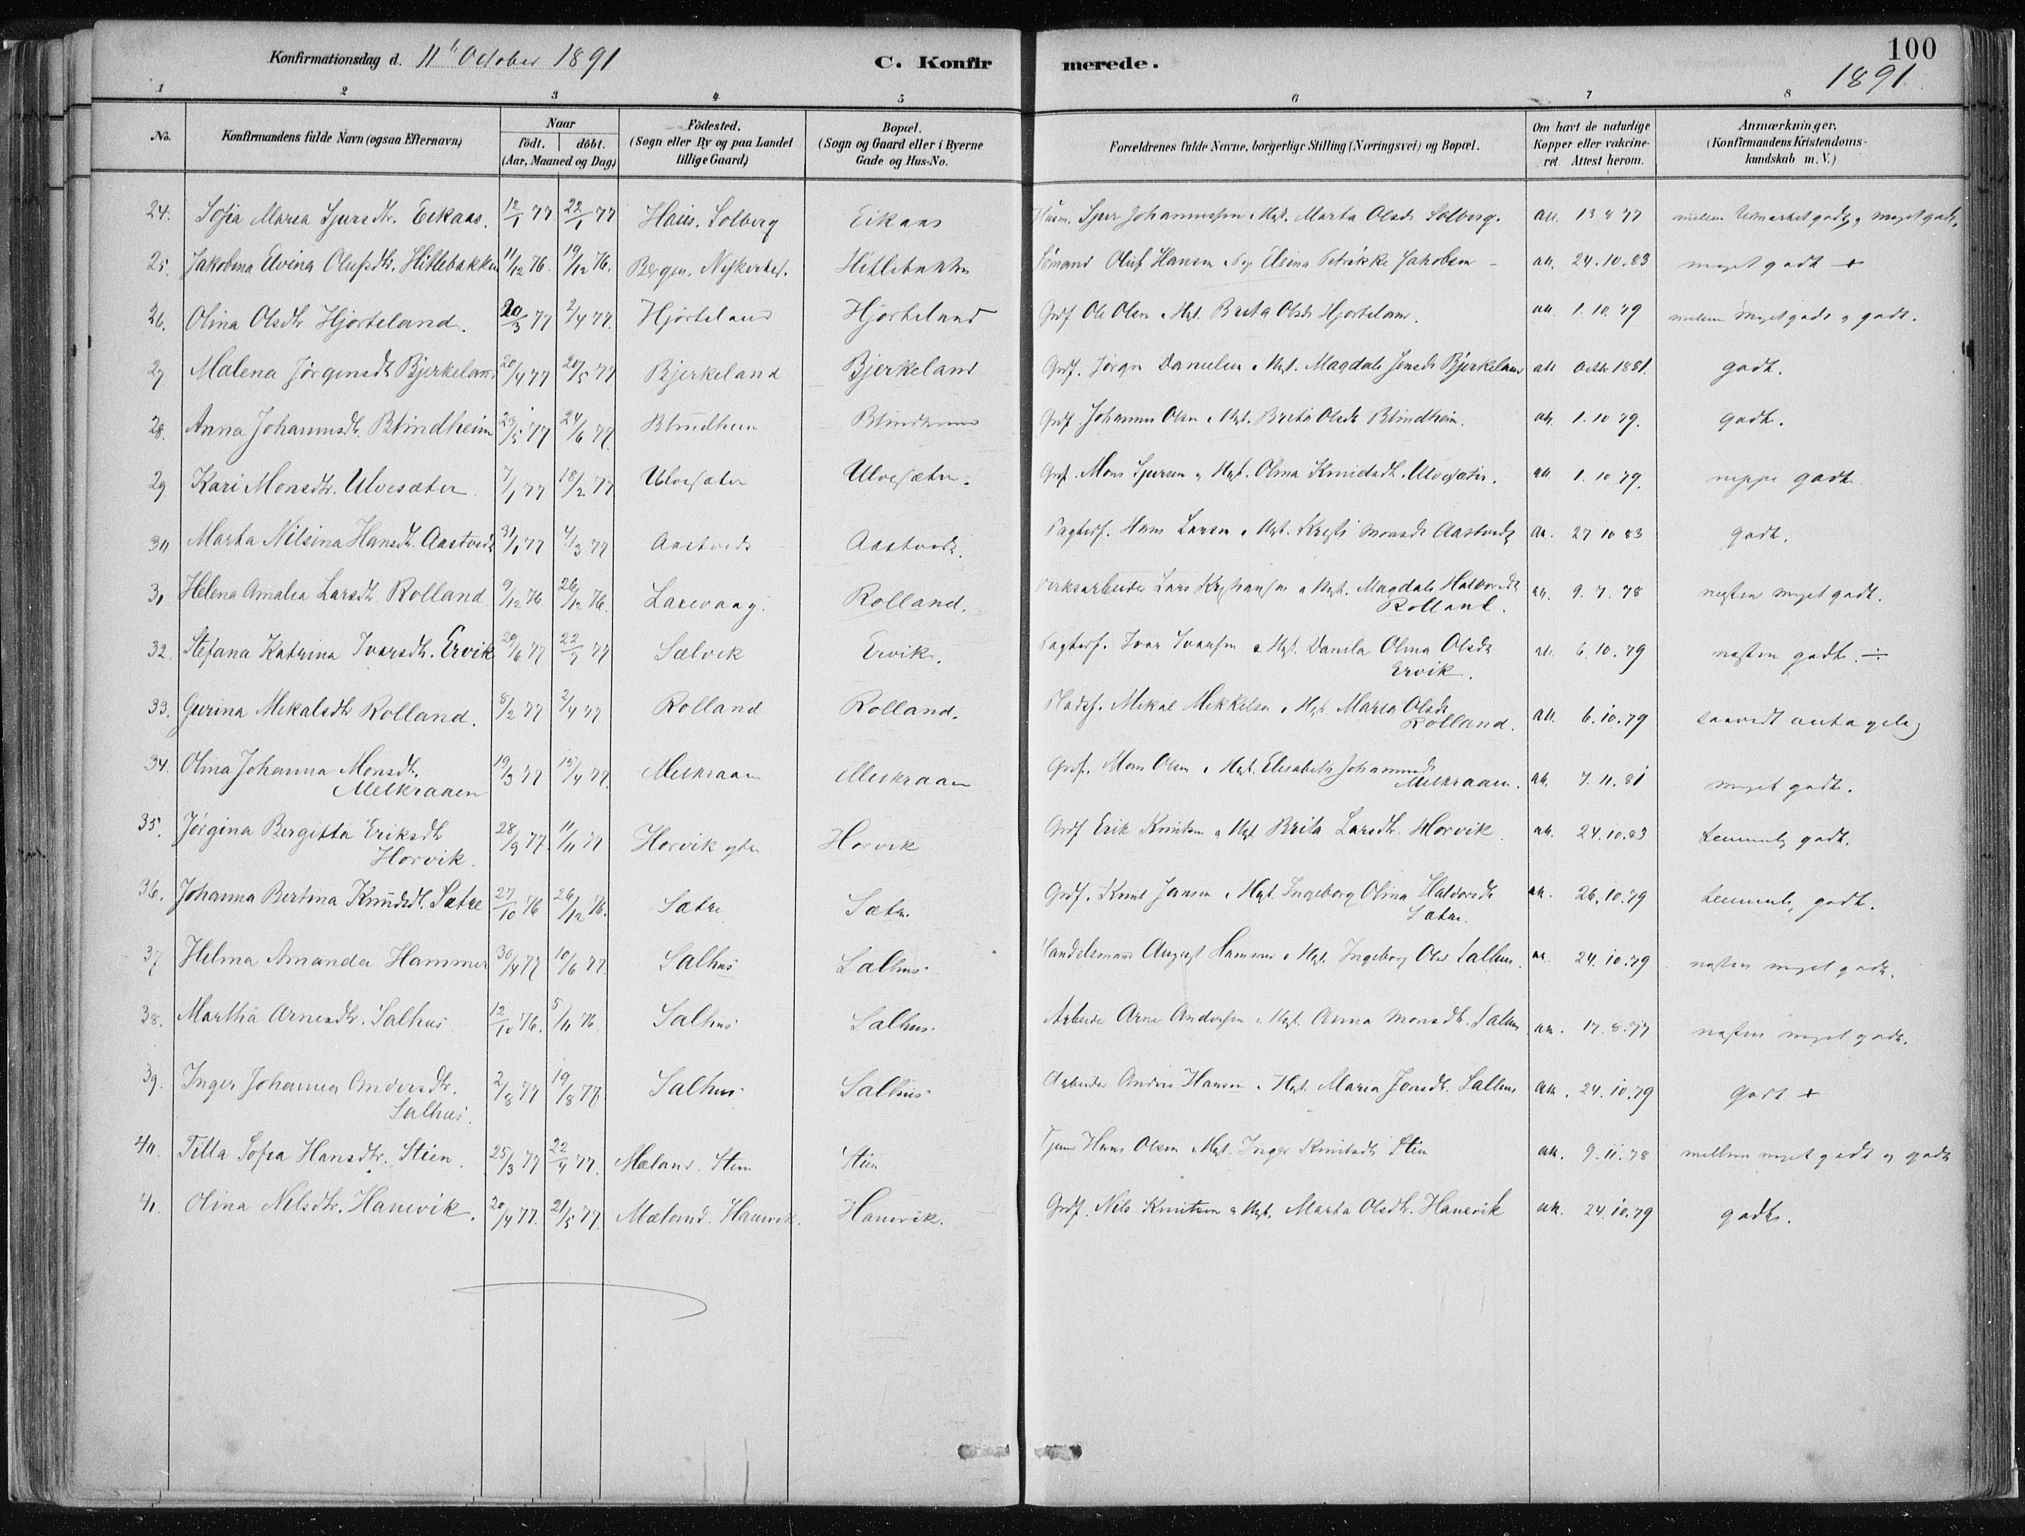 Konfirmationsdag d. 11te October 1891 C. Konfirmerede. 100
1891.
1 2 3 4 5 6 7 8
No. Konfirmandens fulde Navn (ogsaa Efternavn) Naar födt. döbt. (Aar, Maaned og Dag) Födested. (Sogn eller By og paa Landet tillige Gaard) Bopæl. (Sogn og Gaard eller i Byerne Gade og Hus-No. Forældrenes fulde Navne, borgerlige Stilling (Næringsvei) og Bopæl. Om havt de naturlige Kopper eller vakcineret Attest herom. Anmærkninger. (Konfirmandens Kristendomskundskab m. V.)
24. Sofia Maria Sjursdtr. Eikaas. 12/1 77 22/1 77 Haus. Solberg Eikaas Husm. Sjur Johannessen & Hst. Marta Olsdr Solberg. att. 13 8 77
25. Jakobina Elvina Olufsdtr. Hitlebakken 11/12 76. 19/12 76. Bergen. Nykirket. Hitlebakken Sömand Oluf Hansen Elsina Petrikke Jakobsen att. 24.10.83 meget godt +
26. Olina Olsdtr Hjorteland. 20/3 77 2/4 77. Hjorteland Hjorteland Grdf Ole Olsen & Hst. Brita Olsdr Hjorteland. att. 1.10.79 mellem meget godt & godt.
27 Malena Jörgensdtr Bjerkeland 20/4 77 21/5 77 Bjerkeland Bjerkeland Grdf. Jörgen Danielsen & Hst. Magdale Jensdr Bjerkeland att Octbr 1881. godt.
28. Anna Johannesdtr. Blindheim 23/5 77 24/6 77. Blindheim Blindheim Grdf Johannes Olsen & Hst. Brita Olsdr Blindheim. att. 1.10 79. godt.
29 Kari Monsdtr. Ulvesæter 7/1 77 18/2 77 Ulvesæter Ulvesæter. Grdf. Mons Sjursen & Hst. Olina Knudsdr. Ulvesæter. att 1.10 79. neppe godt.
30 Marta Nilsina Hansdtr. Aastvedt 31/1 77 4/3 77 Aastvedt Aastvedt. Pagterf. Hans Larsen & Hst. Kirsti Monsdr Aastvedt att. 27 10 83 godt.
31 Helena Amalia Larsdtr. Rolland 9/12 76. 26/12 76. Laxevaag. Rolland. Verksarbeider Lars Kristiansen & Hst. Magdale Halvorsdr Rolland. att. 9.7.78 næsten meget godt.
32. Stefana Katrina Ivarsdtr. Ervik 20/6 77 22/7 77 Sælvik Ervik. Pagterf. Ivar Ivarsen & Hst. Danila Olina Olsdr Ervik. att. 6.10.79 næsten godt. ÷
33. Gurina Mikalsdtr Rolland. 8/2 77 2/4 77 Rolland Rolland. Pladsf. Mikal Mikkelsen & Hst. Maria Olsdr Rolland. att. 6.10.79 saavidt antagelig
34. Olina Johanna Monsdtr. Melkraaen 19/3 77 15/4 77. Melkraaen Melkraaen Grdf. Mons Olsen & Hst. Elisabeth Johannesdr Melkraaen. att. 7.11.81 meget godt.
35. Jörgina Bergitta Eriksdtr Horvik. 28/9 77. 11/11 77 Horvik ytre Horvik Grdf Erik Knutsen & Hst Brita Larsdtr. Horvik. att. 24.10.83 temmelig godt.
36. Johanna Bertina Knudsdtr. Sætre 27/10 76 26/12 76. Sætre Sætre Grdf. Knut Jansen & Hst. Ingeborg Olina Haldorsdr Sætre. att. 26.10.79 temmelig godt.
37 Helma Amanda Hammer 30/4 77 10/6 77. Salhus Salhus. Handelsmand August Hammer & Hst. Ingeborg Olsdr Salhus. att. 24.10.79 næsten meget godt.
38. Martha Arnesdtr. Salhus 12/10 76. 5/11 76. Salhus Salhus. Arbeider Arne Andersen & Hst. Anna Monsdtr. Salhus att. 17.8.77 næsten meget godt.
39. Inger Johanna Andersdtr. Salhus. 2/8 77 19/8 77. Salhus Salhus. Arbeider Anders Hansen & Hst. Maria Jonsdtr. Salhus att. 24.10.79 godt +
40. Tilla Sofia Hansdtr. Stien. 25/3 77 22/4 77. Mæland. Stien Stien Hans Olsen & Hst. Inger Knutsdtr Stien att. 9.11.78 mellem meget godt og godt
41. Olina Nelsdtr. Hanevik. 20/4 77. 21/5 77. Mæland. Hanevik. Hanevik. Grdf. Nils Knutsen & Hst. Marta Olsdtr. Hanevik att. 24.10.79 godt.